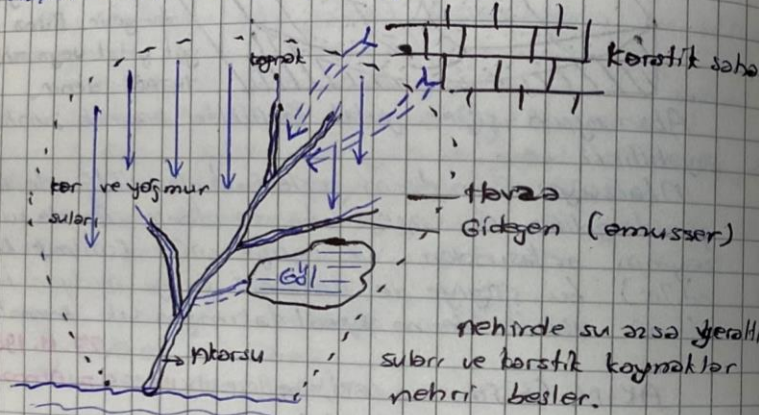 kaynak
Karstik saha
kar ve yağmur
suları
Havza
Gideğen (emusser)
Göl
Akarsu
nehirde su azsa yeraltı
suları ve karstik kaynaklar
nehri besler.